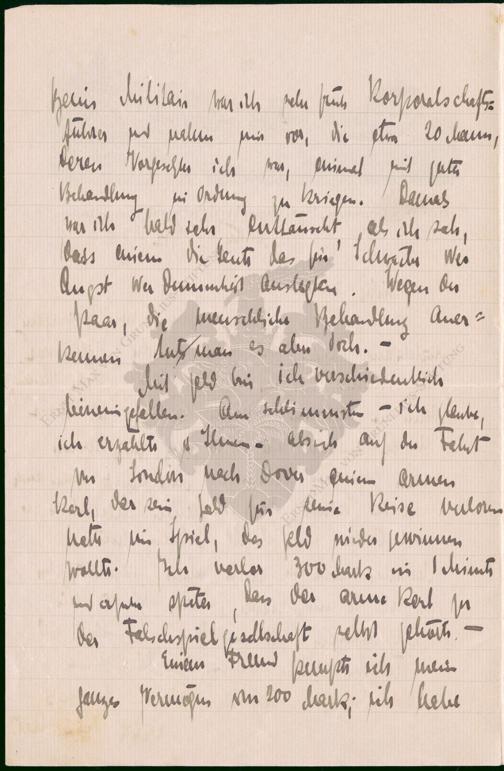 Beim Militair war ich sehr früh Korporalschafts=
führer und nahm mir vor, die etwa 20 Mann,
deren Vorgesetzter ich war, einmal mit guter
Behandlung in Ordnung zu kriegen. Damals
war ich bald sehr enttäuscht, als ich sah,
dass einem die Leute das für Schwäche oder
Angst oder Dummheit auslegten. Wegen der
paar, die menschliche Behandlung aner=
kennen tut man es aber doch. –
Mit Geld bin ich verschiedentlich
hineingefallen. Am schlimmsten – ich glaube,
ich erzählte es Ihnen – als ich auf der Fahrt
von London nach Dover einem armen
Kerl, der sein Geld für seine Reise verloren
hatte im Spiel, das Geld wieder gewinnen
wollte. Ich verlor 300 Mark in 5 Minuten
und erfuhr später, dass der arme Kerl zu
der Falschspielgesellschaft selbst gehörte. –
Einem Freund pumpte ich mein
ganzes Vermögen von 200 Mark; ich habe